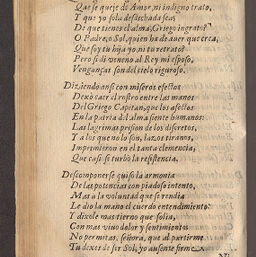 Que se queje de Amor, ni indigno trato,
Y que yo sola desdichada sea,
De que tienes el alma, Griego ingrato?
O Padre, o Sol, quien ha de auer que crea,
Que soy tu hija yo ni tu retrato?
Pero si di veneno al Rey mi esposo,
Vengança son del cielo riguroso.
Diziendo ansi con miseros efectos
Dexò caer el rostro entre las manos
Del Griego Capitan, que los afectos
En la patria del alma siente humanos:
Las lagrimas prision de los discretos,
Y a los que no lo son, lazos tiranos,
Imprimieron en el tanta clemencia,
Que casi se turbò la resistencia.
Descomponerse quiso la armonia
De las potencias con piadoso intento,
Mas a la voluntad que se rendia
Le dio la mano el cuerdo entendimiento:
Y dixole mas tierno que solia,
Con mas viuo dolor y sentimiento
No permitas, señora, que al partirme
Tu dexes de ser Sol, yo ausente firme